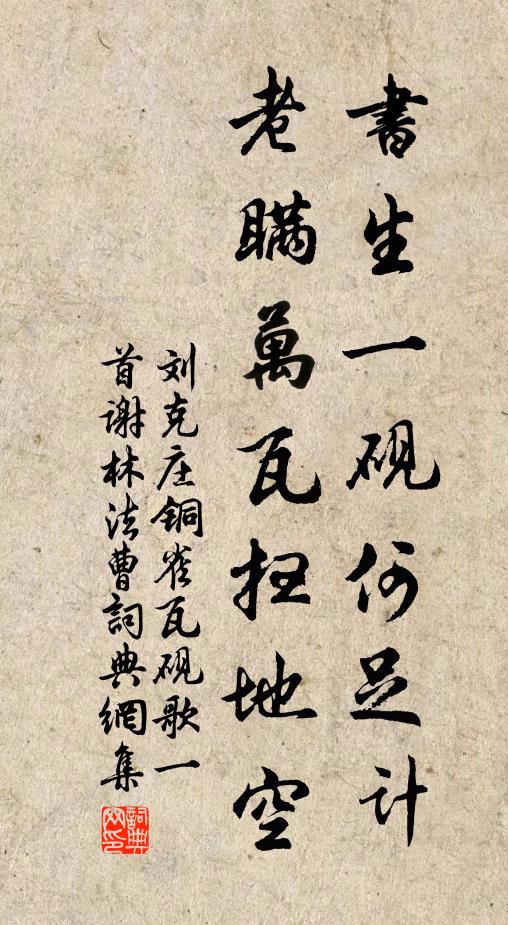 書生一砚何足计
老瞒萬瓦扫地空
刘克庄铜雀瓦砚歌一
首谢林法曹詞典網集
詞典
网印